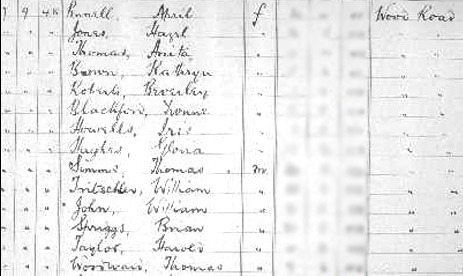 7 9 48 Pinnell, April f Wood Road
" " " Jones, Hazel " " "
" " " Thomas, Anita " " "
" " " Brown, Kathryn " " "
" " " Roberts, Beverley " " "
" " " Yvonne " " "
" " " Howells, Iris " " "
" " " Hughes, Gloria " " "
" " " Simms, Thomas m. " "
" " " Tritschler, William " " "
" " " John, William " " "
" " " Spriggs, Brian " " "
" " " Taylor, Harold " " "
" " " Woodward, Thomas " " "